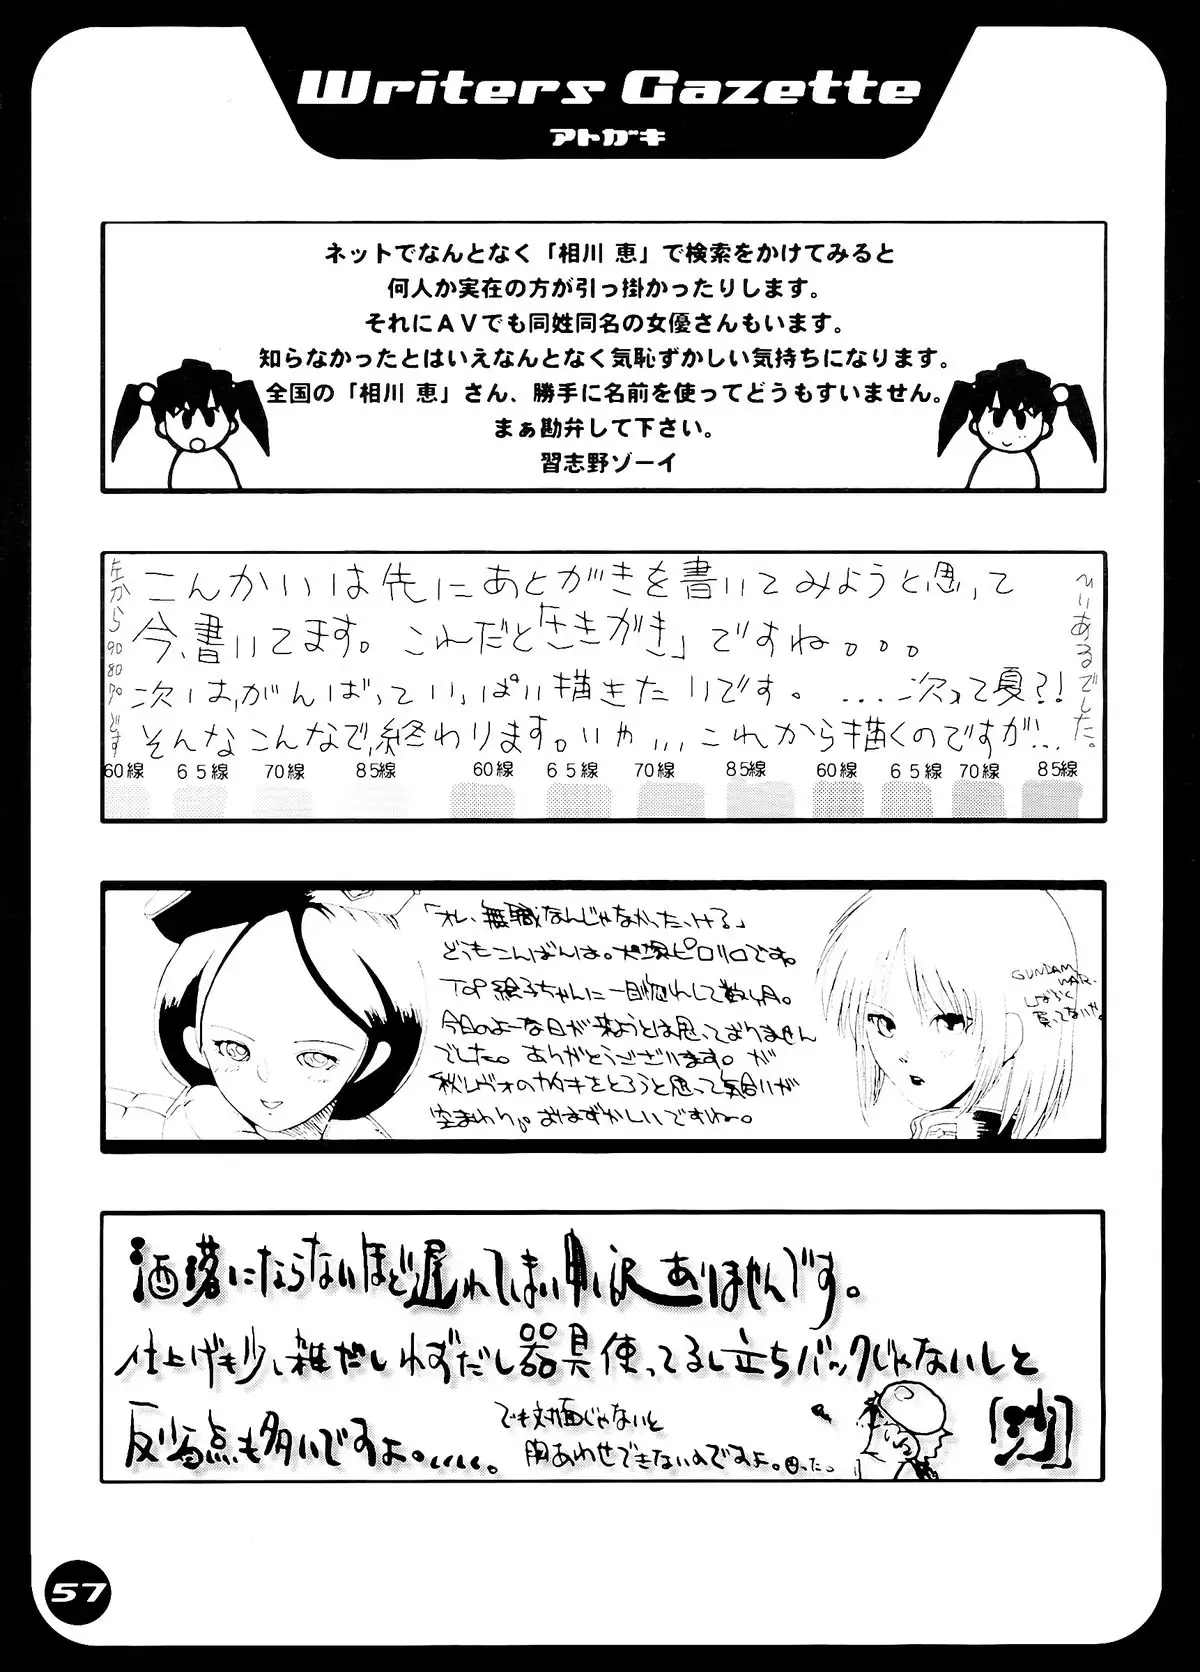 Writers Gazette
アトガキ
ネットでなんとなく「相川 恵」で検索をかけてみると
何人か実在の方が引っ掛かったりします。
それにAVでも同姓同名の女優さんもいます。
知らなかったとはいえなんとなく気恥ずかしい気持ちになります。
全国の「相川 恵」さん、勝手に名前を使ってどうもすいません。
まぁ勘弁して下さい。
習志野ゾーイ
こんかいは先にあとがきを書いてみようと思って
今、書いてます。これだと「さきがき」ですね。。。
次は、がんばっていっぱい描きたいです。...次って夏?!
そんなこんなで、終わります。いや、、、これから描くのですが...
左から90 80 70です
ひぃあるでした。
60線 65線 70線 85線 60線 65線 70線 85線 60線 65線 70線 85線
「オレ、無職なんじゃなかったっける」
どうもこんばんは。犬塚ピロリロです。
TOP絵子ちゃんに一目惚れして数ヶ月。
今日のよーな日が来ようとは思っておりません
でした。ありがとうございます。が
秋レヴォのカタキをとろうと思って気合いが
空まわり。おはずかしいですねー。
GUNDAM
WAR.
しばらく
買ってないなぁ。
洒落にならないほど遅れてしまい申し訳ありませんです。
仕上げも少し雑だしわずだし器具使ってるし立ちバックじゃないしと
反省点も多いですよ。、、、、。
でも対面じゃないと
胸あわせできないのですよ。困った。
57